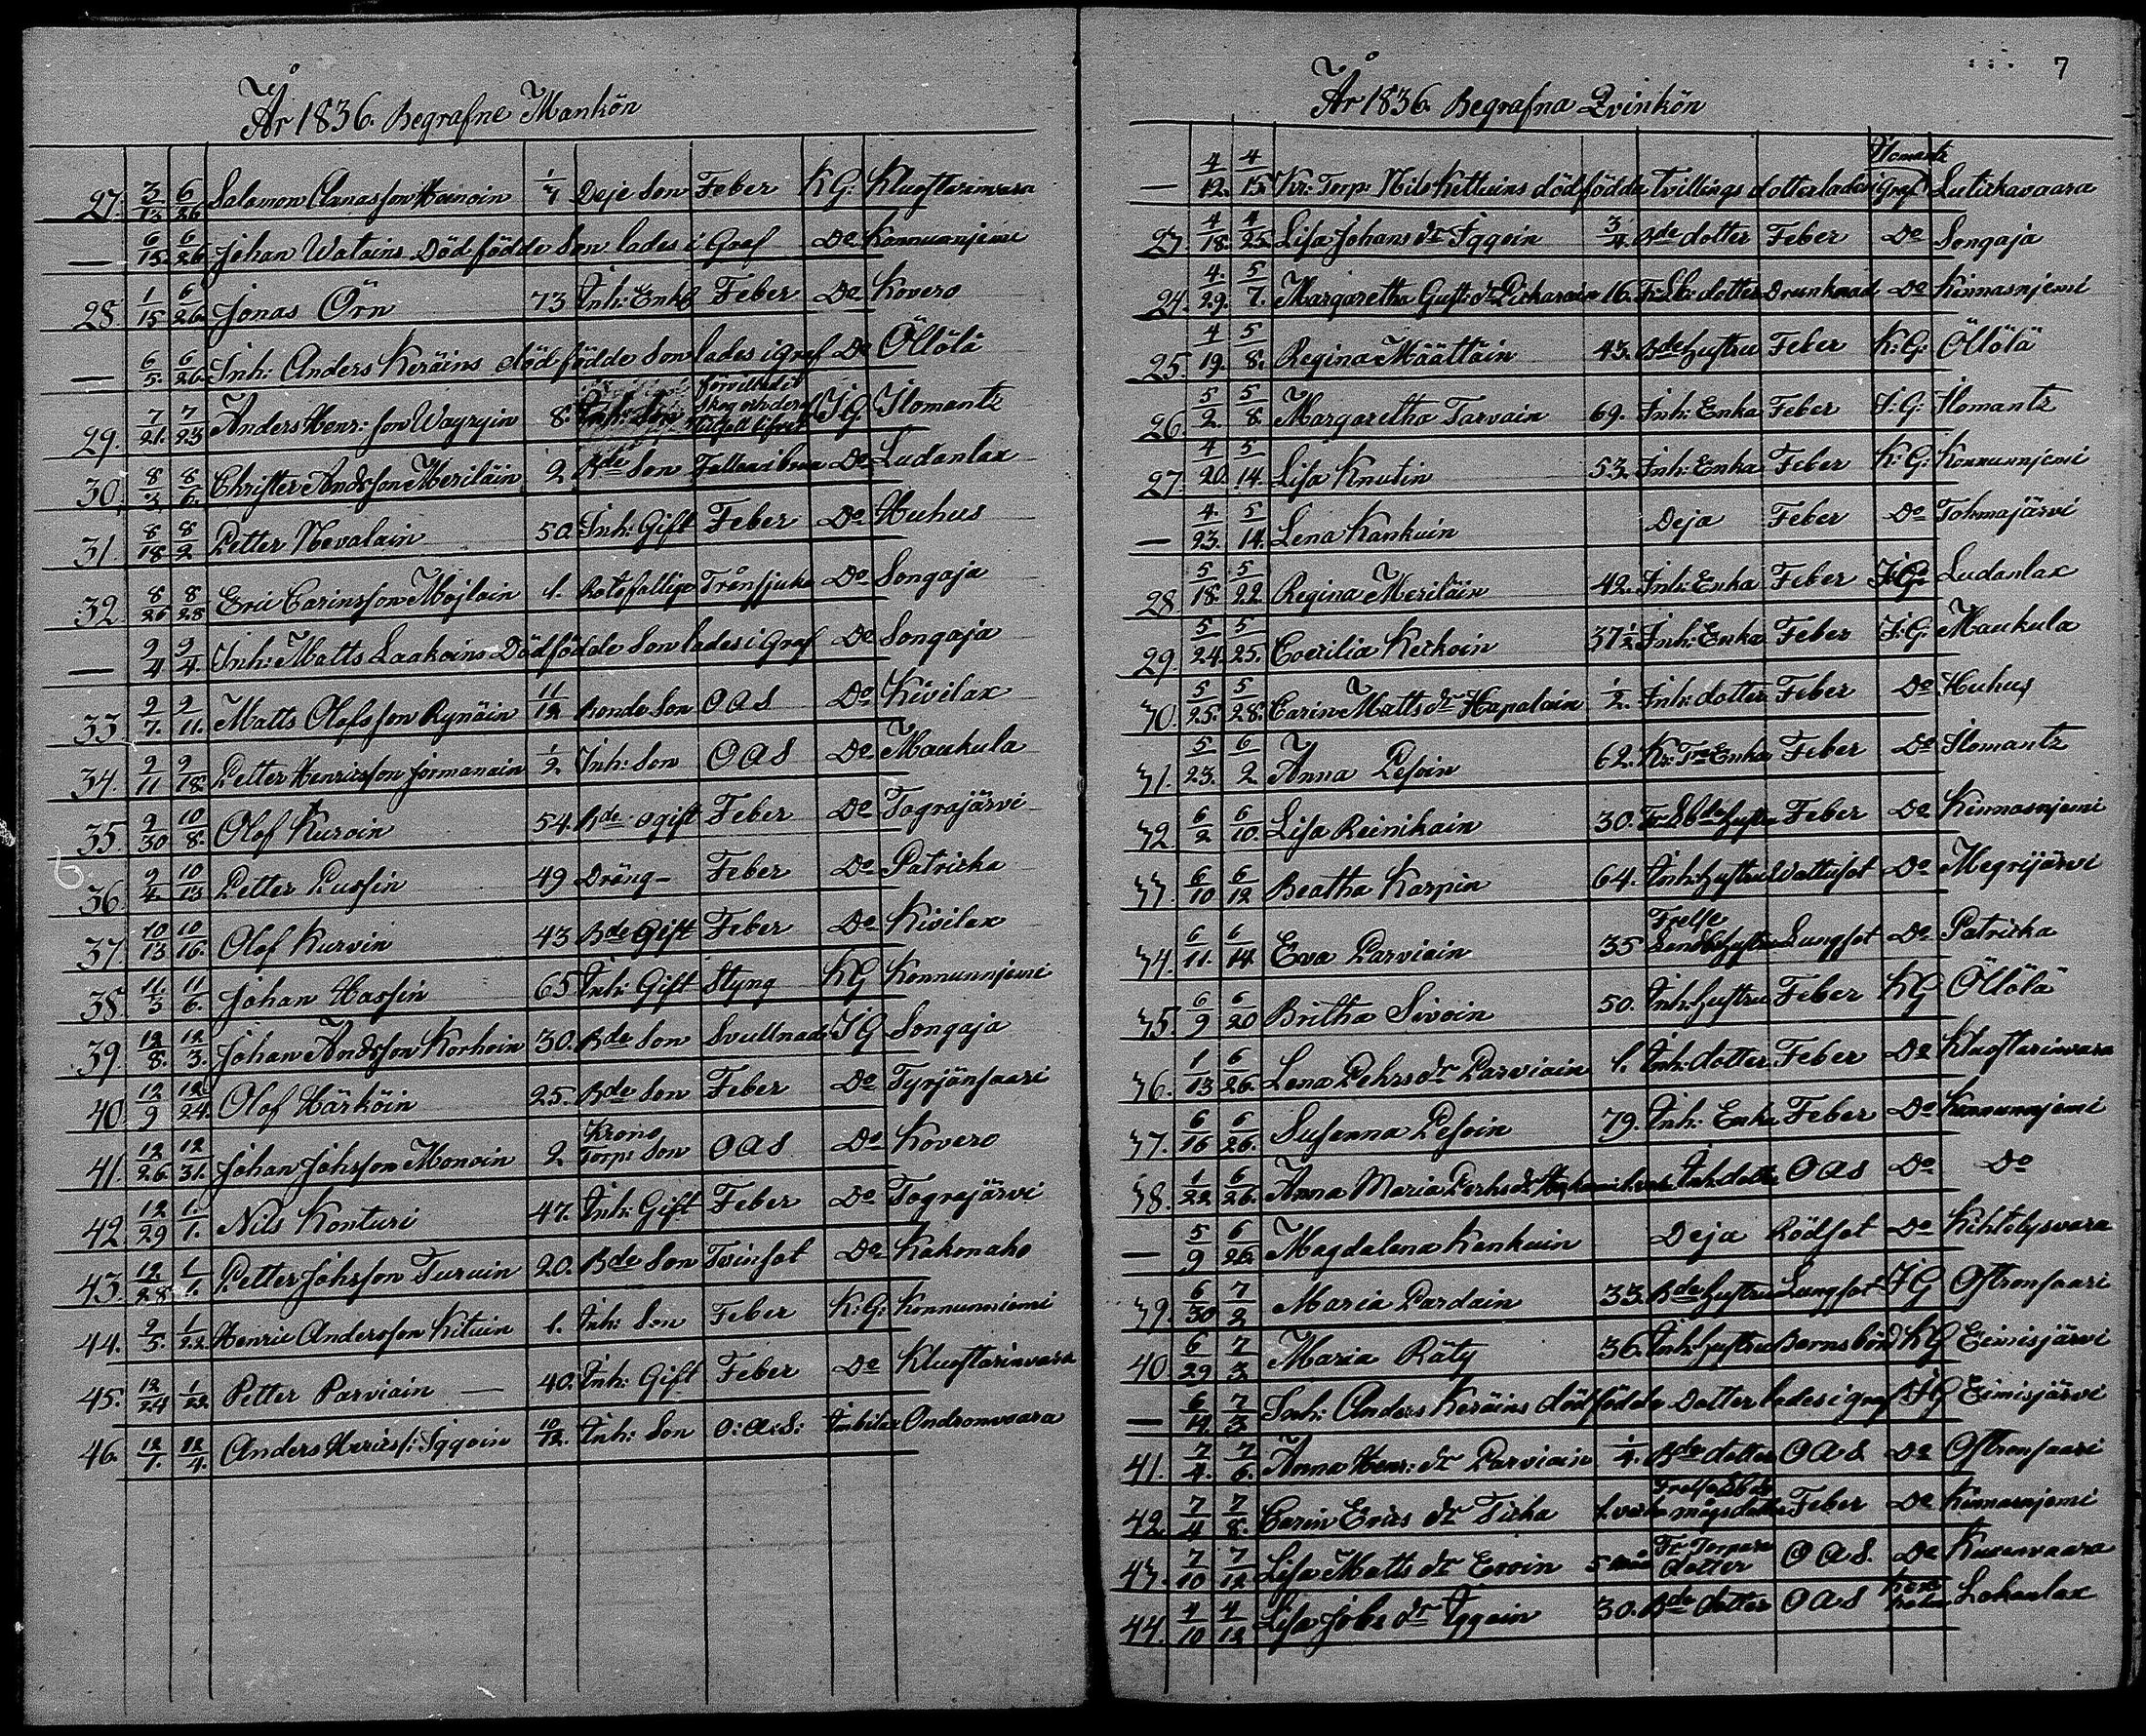 År 1836. Begrafne Mankön
27. 3/13 6/26 Salomon Annasson 1/7 Deje Son Feber KG: Kluoftarinvara
— 6/15 6/26 Johan Watains Död födde Son lades i Graf Do Konnunnjemi
28. 1/15 6/26 Jonas Örn 73 Inh: Enkl Feber Do Kovero
— 6/5. 6/26. Inh: Anders Keräins död födde Son lades i graf Do Öllölä
29. 7/21. 7/23 Anders Henr: son Wäyryin 8. Inh: Son förvillad i Skog och deraf tillsatt lifvet IG Ilomantz
30. 8/3 8/6. Christer Andsson Meriläin 2 Bde Son Do Ludanlax
31. 8/18 8/2 Petter Nevalain 50 Inh: Gift Feber Do Huhus
32. 8/26 8/28 Eric Carinsson Mojlain 1. Rotefallige Trånsjuka Do Songaja
— 9/4 9/4. Inh: Matts Laakoins Dödfödde Son lades i Graf Do Songaja
33. 9/7. 9/11. Matts Olofsson Rynäin 11/12 Bonde Son OAS Do Kivilax
34. 9/11 9/18 Petter Henricsson Jormanain 1/2 Inh: Son OAS Do Maukula
35. 9/30 10/8. Olof Kuroin 54. Bde ogift Feber Do Tograjärvi
36. 9/4. 10/13 Petter Pussin 49 Dräng – Feber Do Patricka
37. 10/13 10/16. Olof Kurvin 43 Bde Gift Feber Do Kivilax
38. 11/3 11/6. Johan Hassin 65 Inh: Gift Styng KG Konnunnjemi
39. 12/8. 12/3. Johan Andsson Korhoin 30. Bde Son Svullnad IG Songaja
40. 12/9 12/24. Olof Härköin 25. Bde Son Feber Do Tyrjänsaari
41. 12/26. 12/31. Johan Johsson Monoin 2 Krono Torp: Son OAS Do Kovero
42. 12/29 1/1. Nils Konturi 47. Inh: Gift Feber Do Tograjärvi
43. 12/28. 1/1. Petter Johsson Turuin 20. Bde Son Tvinsot Do Kakonaho
44. 9/5. 1/22. Henric Andersson Kituin 1. Inh: Son Feber K:G: Konnunniemi
45. 12/24 1/22. Petter Parviain — 40. Inh: Gift Feber Do Kluoftarinvara
46. 12/7. 12/4. Anders Henricss: Iggoin 10/12. Inh: Son O:A:S: Imbilax Andronvaara
7
År 1836. Begrafna Qvinkön
— 4/12. 4/15. Kr: Torp: Nils Kettuins död födde tvillings dotter lades i Graf Ilomantz Lutikavaara
23 4/18. 4/25. Lisa Johans dr Iggoin 3/4. Bde dotter Feber Do Songaja
24. 4./29. 5/7. Margaretha Gust: dr Pickarain 16. Fr: Lb: dotter Drunknad Do Kinnasnjemi
25. 4/19. 5/8. Regina Määttäin 43. Bde hustru Feber K:G: Öllölä
26. 5/2. 5/8. Margaretha Tarvain 69. Inh: Enka Feber I:G: Ilomantz
27. 4/20. 5/14. Lisa Knutin 53. Inh: Enka Feber K:G: Konnunnjemi
— 4./23. 5/14. Lena Kankuin Deja Feber Do Tohmajärvi
28. 5/18. 5/22. Regina Meriläin 42. Inh: Enka Feber I:G: Ludanlax
29. 5/24. 5/25. Coecilia Kerkoin 37 1/2 Inh: Enka Feber I:G: Maukula
30. 5/25. 5/28. Carin Matts dr Hapalain 1/2. Inh: dotter Feber Do Huhus
31. 5/23. 6/2 Anna Pesoin 62. Kr: Trs Enka Feber Do Ilomantz
32 6/2 6/10. Lisa Reinikain 30. Fr: Lbde hustru Feber Do Kinnasnjemi
33. 6/10 6/12 Beatha Karpin 64. Inh: hustru Wattusot Do Megrijärvi
34. 6/11. 6/14 Eva Parviain 35 Frelse Landb: hustru Lungsot Do Patricka
35. 6/9 6/20 Britha Sivoin 50. Inh: hustru Feber KG Öllölä
36. 1/13 6/26. Lena Pehrs dr Parviain 1. Inh: dotter Feber Do Kluoftarinvara
37. 6/16 6/26. Susanna Pesoin 79. Inh: Enka Feber Do Konnunnjemi
38. 1/22 6/26. Anna Maria Pehrs dr Inh: dotter OAS Do Do
— 5/9 6/26. Magdalena Kankuin Deja Rödsot Do Kihtelysvara
39. 6/30 7/2 Maria Pardain 33. Bde hustru Lungsot IG Oftronsaari
40 6/29 7/3. Maria Räty 36. Inh: hustru Barnsbörd KG Eimisjärvi
— 6/14. 7/3 Inh: Anders Keräins död födde Dotter lades i graf IG Eimisjärvi
41. 7/4. 7/6. Anna Henr: dr Parviain 1/4. Bde dotter OAS Do Oftronsaari
42. 7/4 7/8. Carin Erics dr Ticka 1. vecka Frelse Lbde mågs dotter Feber Do Kinnasnjemi
43. 7/10 7/12 Lisa Matts dr Eroin 5 mån Fr: Torpare dotter OAS. Do Kuuavaara
44. 4/10 4/12 Lisa Johs dr Iggoin 30. Bde dotter OAS Lohanlax